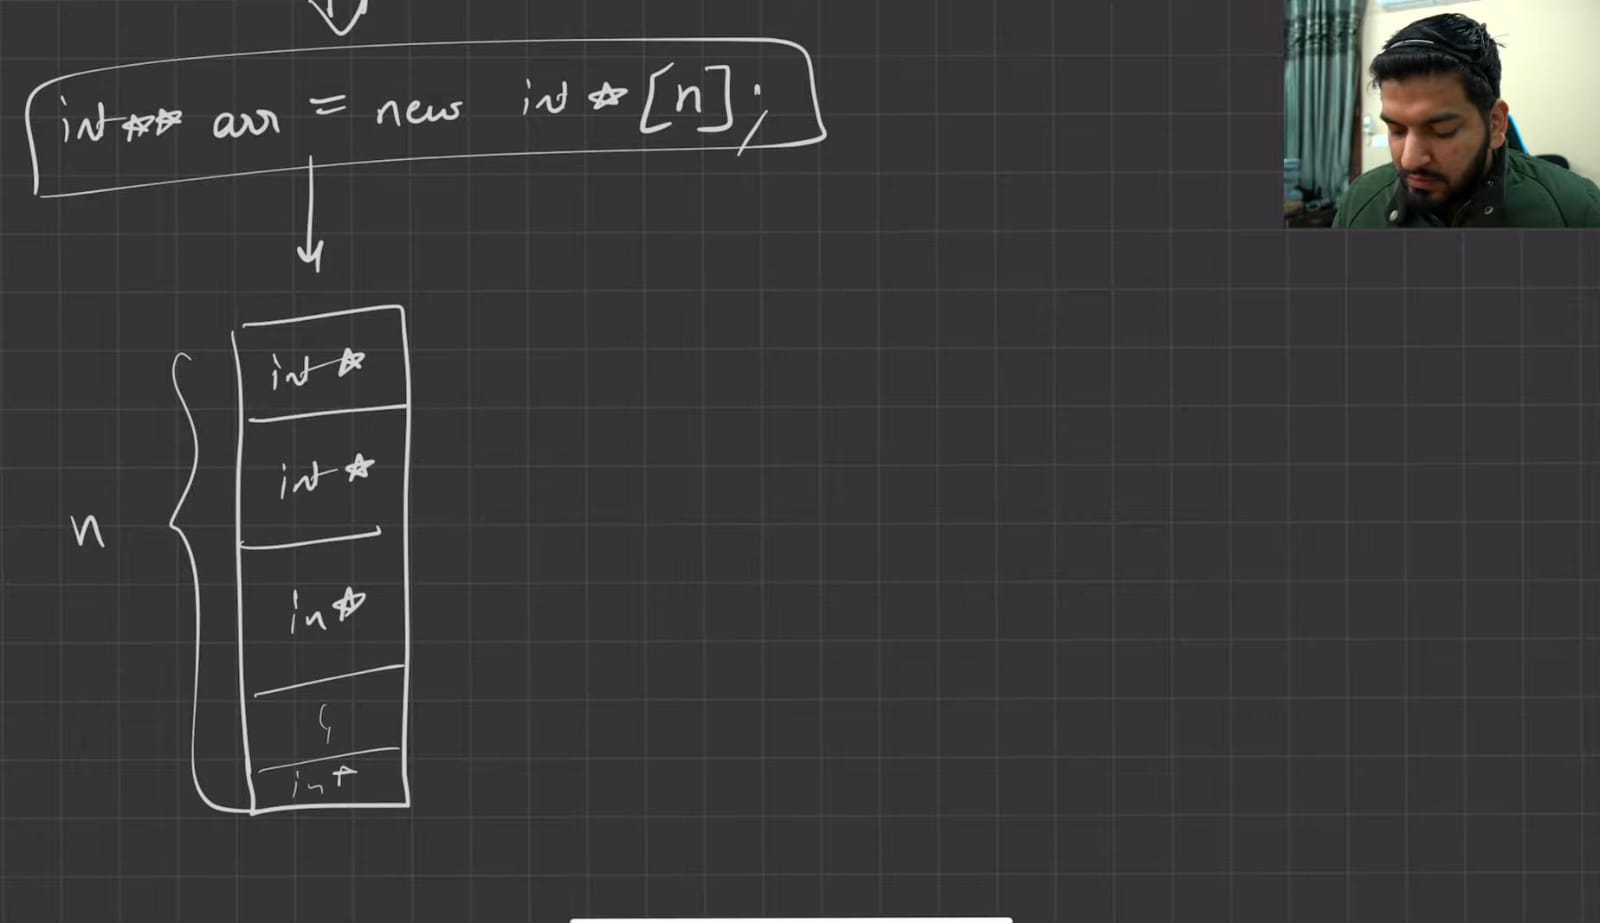 int** arr = new int*[n];
int*
int*
n
in*
int*